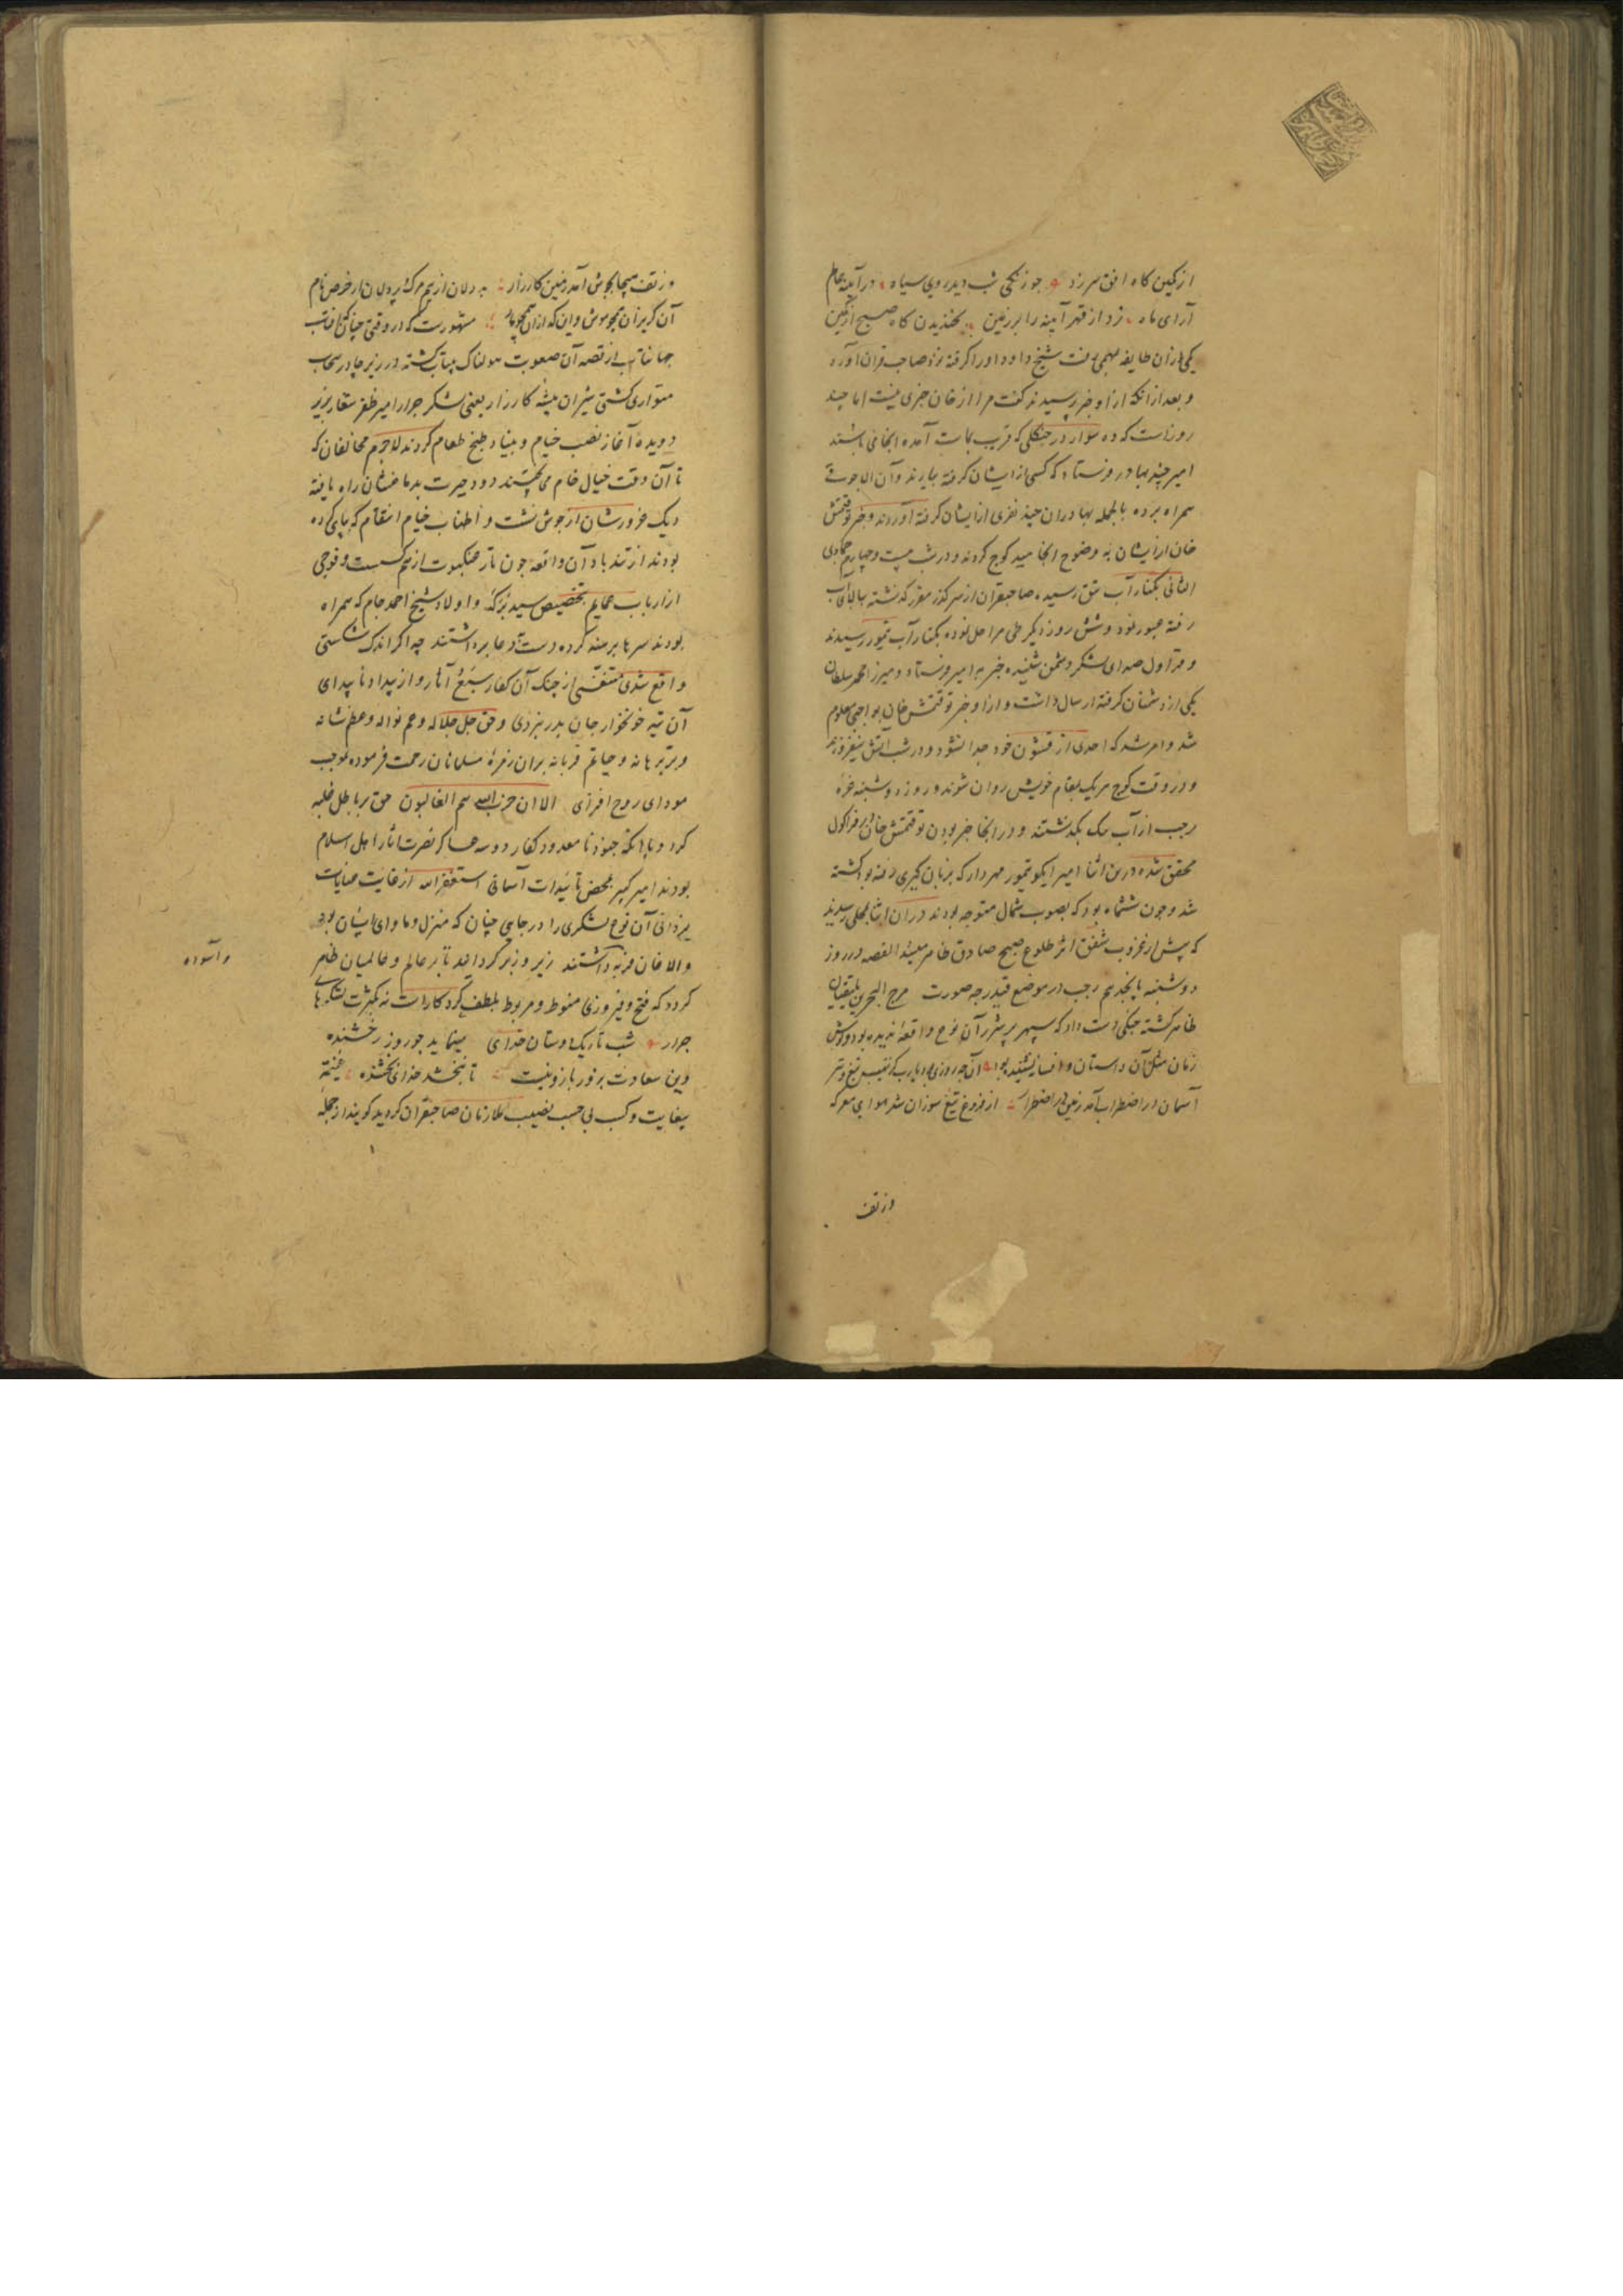 از کمین کاه افق سر زد جو زنکی شب دید روی سیاه در آینهٔ عالم
آرای ماه زد از قهر آینه را بر زمین بخندیدن کاه صبح از کمین
یکی از آن طایفه بهمی رفت شیخ داود او را کرفته نزد صاحب قران آورد
و بعد از آنکه از او خبر پرسیدند کفت مرا از خان خبری نیست اما چند
روزاست که ده سوار در جنکلی که قریب بماست آمده انجا می باشند
امیر چند بهادر فرستاد که کسی از ایشان کرفته بیارند و آن الاجوقی
همراه برده بالجمله بهادران چند نفری از ایشان کرفته آوردند و خبر توقتمش
خان از ایشان به وضوح انجامید کوچ کردند و در شب بیست و چهارم جمادی
الثانی بکنار آب یتق رسیده صاحبقران از سر کذر مقرر کذشته ببالای آب
رفته عبور نمود و شش روز دیکر طی مراحل نموده بکنار آب تمور رسیدند
و قراول صدای لشکر دشمن شنیده خبر بر امیر فرستاد و میرزا محمد سلطان
یکی از دشمنان کرفته ارسال داشت و از او خبر توقتمش خان بواجبی معلوم
شد و امر شد که احدی از قشون خود جدا نشود و در شب آتش نیفروزند
و در وقت کوچ هر یک بمقام خویش روان شوند و روز دوشنبه غرهٔ
رجب از آب بکذشتند و در انجا خبر بودن توقتمش خان در قراکول
محقق شده درین اثنا امیر ایکو تیمور مهردار که بزبان کیری رفته بود کشته
شد و جون ششماه بود که بصوب شمال متوجه بودند در آن اثنا بمحلی رسیدند
که پیش از غروب شفق اثر طلوع صبح صادق ظاهر میشد القصه در روز
دوشنبه پانجدهم رجب در موضع قندرجه صورت مرج البحرین یلتقیان
ظاهر کشته جنکی دست داد که سپهر پرشرر آن نوع واقعه ندیده بود و کوش
زمان مثل آن داستان و افسانه نشنیده بود آن جه روزی بود یارب کز نهیب تیغ و تیر
آسمان در اضطراب آمد زمین در اضطراب از فروغ تیغ سوزان شد هوای معرکه
وز تف
وز تف هیجا بجوش آمد زمین کارزار بد دلان از بیم مرک و پر دلان از حرص نام
آن کریزان همجو موش و این که ازان همجو مار مشهورست که در وقتی چنان که آفتاب
جهانتاب از قصه آن صعوبت هولناک بیتاب کشته در زیر جادر سحاب
متواری کشتی شیران بیشه کارزار یعنی لشکر جرار امیر ظفر شعار بزیر
دویده آغاز نصب خیام و بنیاد طبخ طعام کردند لاجرم مخالفان که
تا آن وقت خیال خام می پختند دود حیرت بدماغشان راه یافته
دیک غرورشان از جوش نشست و اطناب خیام انتقام که بپای کرده
بودند از تندباد آن واقعه جون تار عنکبوت از هم کسست و فوجی
از ارباب عمایم بتخصیص سید برکه و اولاد شیخ احمد جام که همراه
بودند سرها برهنه کرده دست دعا برداشتند چه اکر اندک شکستی
واقع شدی متنفسی از چنک آن کفار سبع آثار و از بیداد ناپیدای
آن تیه خونخوار جان بدر نبردی و حق جل جلاله و عم نواله و عظم شانه
بر آن زمره مسلمانان رحمت فرموده بموجب
مودای روح افزای الا ان حزب الله هم الغالبون حق بر باطل غلبه
کرد و با آنکه جنود نامعدود کفار دو سه عساکر نصرت آثار اهل اسلام
بودند امیر کبیر بمحض تأییدات آسمانی استغفر الله از غایت عنایات
یزدانی آن نوع لشکری را در جایی چنان که منزل و ماوای ایشان بود
والاخان مرتبه داشتند زیر و زبر کردانید تا بر عالم و عالمیان ظاهر
کردد که فتح و فیروزی منوط و مربوط بلطف کردکاراست نه بکثرت لشکرهای
جرار شب تاریک دوستان خدای مینماید جو روز رخشنده
وین سعادت بزور بازو نیست تا نبخشد خدای بخشنده غنیمة
بیغایت و کسب بی حسب نصیب ملازمان صاحبقران کردید کویند از جمله
و آسوده